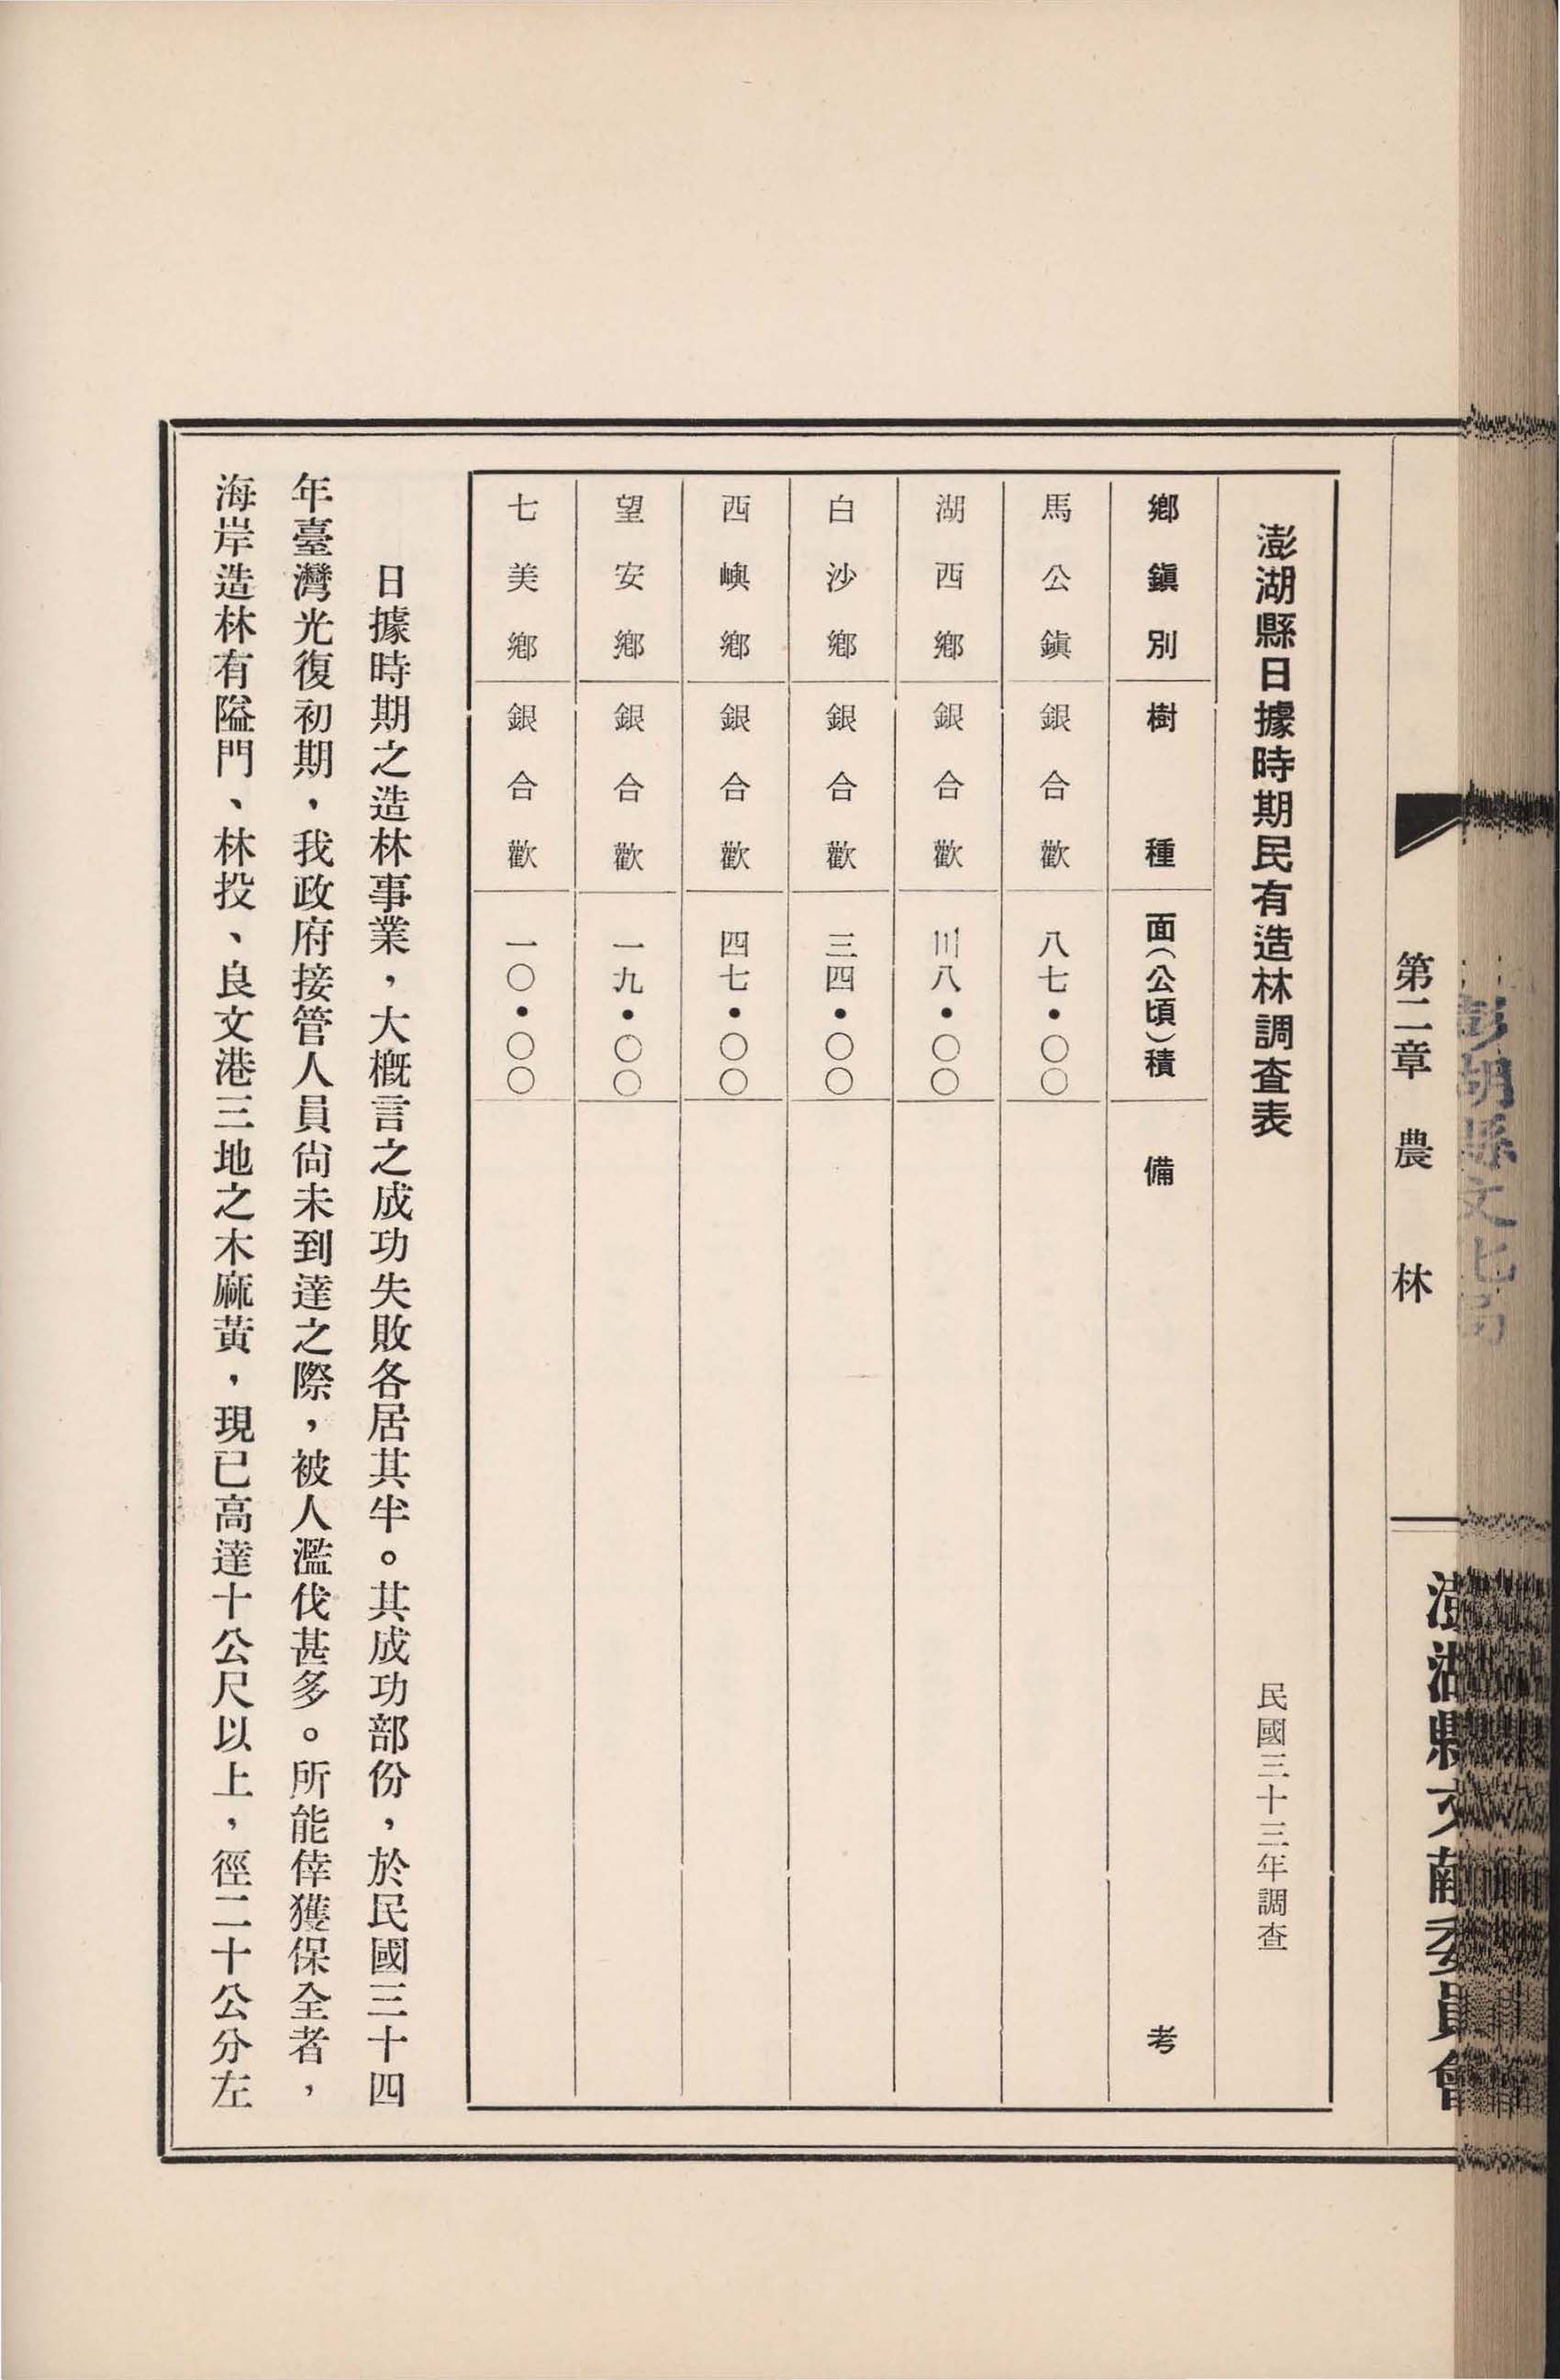 第二章　農　林
澎湖縣文獻委員會
澎湖縣文化局
澎湖縣日據時期民有造林調查表
民國三十三年調查
鄉鎮別　樹種　面（公頃）積　備考
馬公鎮　銀合歡　八七・〇〇
湖西鄉　銀合歡　川八・〇〇
白沙鄉　銀合歡　三四・〇〇
西嶼鄉　銀合歡　四七・〇〇
望安鄉　銀合歡　一九・〇〇
七美鄉　銀合歡　一〇・〇〇
日據時期之造林事業，大概言之成功失敗各居其半。其成功部份，於民國三十四
年臺灣光復初期，我政府接管人員尚未到達之際，被人濫伐甚多。所能倖獲保全者，
海岸造林有隘門、林投、良文港三地之木麻黃，現已高達十公尺以上，徑二十公分左